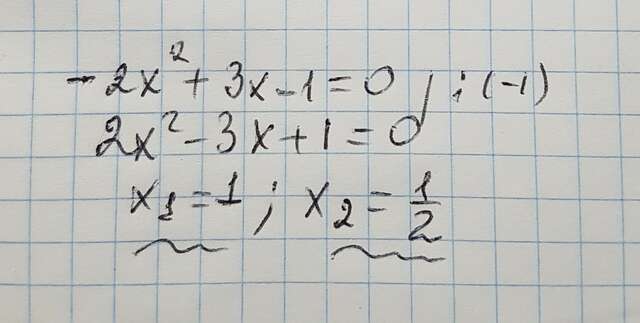 -2x² + 3x - 1 = 0 | : (-1)
2x² - 3x + 1 = 0
x₁ = 1 ; x₂ = 1/2